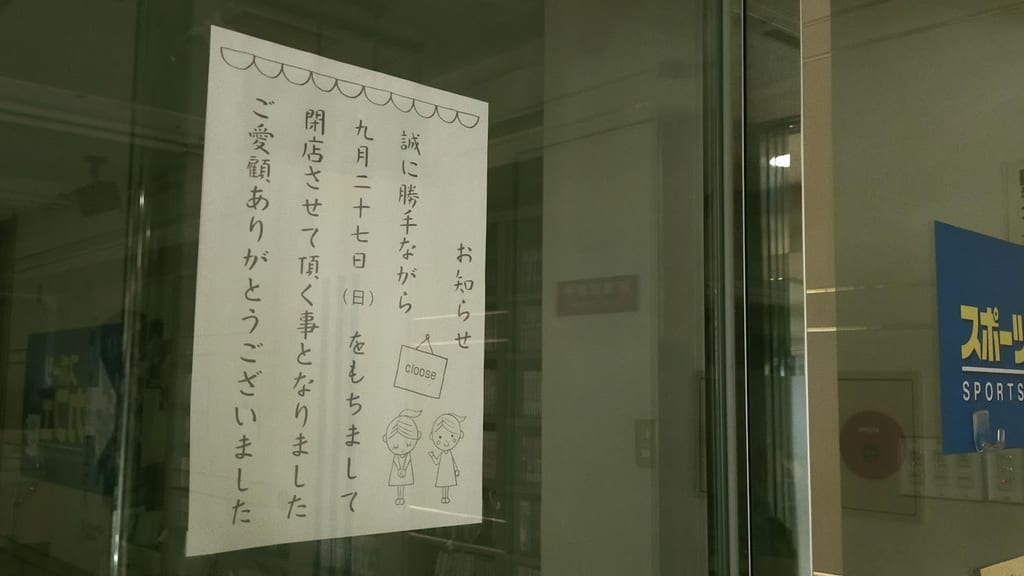 お知らせ
誠に勝手ながら
九月二十七日（日）をもちまして
閉店させて頂く事となりました
ご愛顧ありがとうございました
cloose
スポーツ
SPORTS